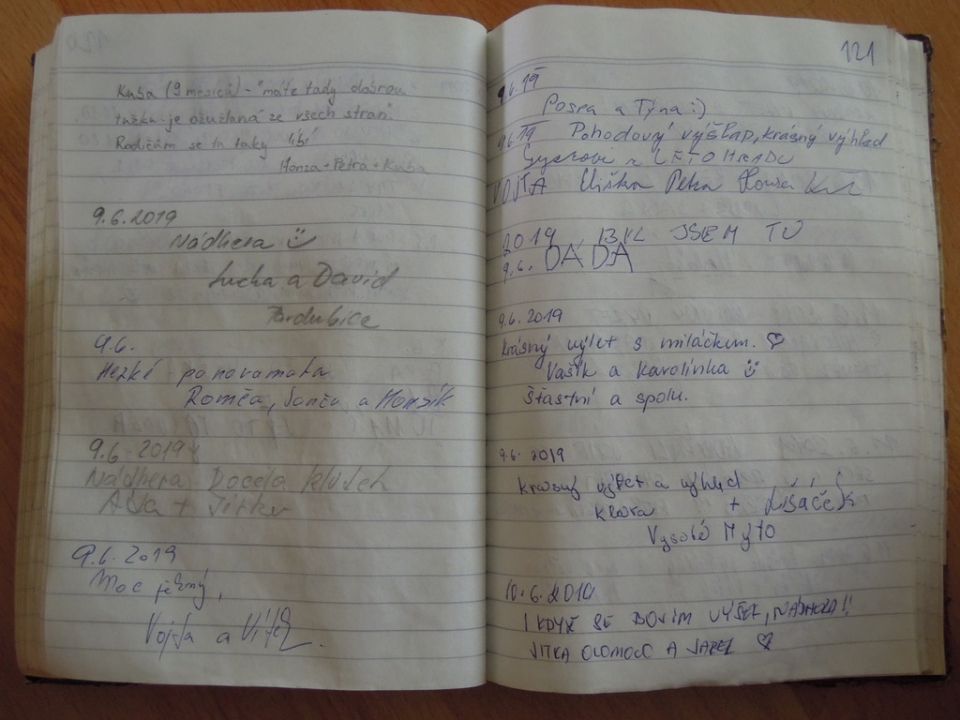 120
Kuba (9 měsíců) - "máte tady dobrou
tužku - je ožužlaná ze všech stran"
Rodičům se tu taky líbí
Honza + Petra + Kuba
9.6.2019
Nádhera
Lucka a David
Pardubice
9.6.
Hezké panoramata
Romča, a Honzík
9.6.2019
Nádhera Docela
+ Jirka
9.6.2019
Moc pěkný,
Vojta a Vítek.
121
9.6.19
a Týna :)
9.6.19 Pohodový výšlap, krásný výhled
z LETOHRADU
VOJTA Eliška Petra Honza
2019 13 KL JSEM TU
9.6. DÁDA
9.6.2019
Krásný výlet s miláčkem. ♡
Vašík a Karolínka
Šťastní a spolu.
9.6.2019
Krásný výlet a výhled
Klára + Lišáček
Vysoké Mýto
10.6.2019
I KDYŽ SE BOJÍM VÝŠEK, NÁDHERA!!
JITKA OLOMOUC A ♡